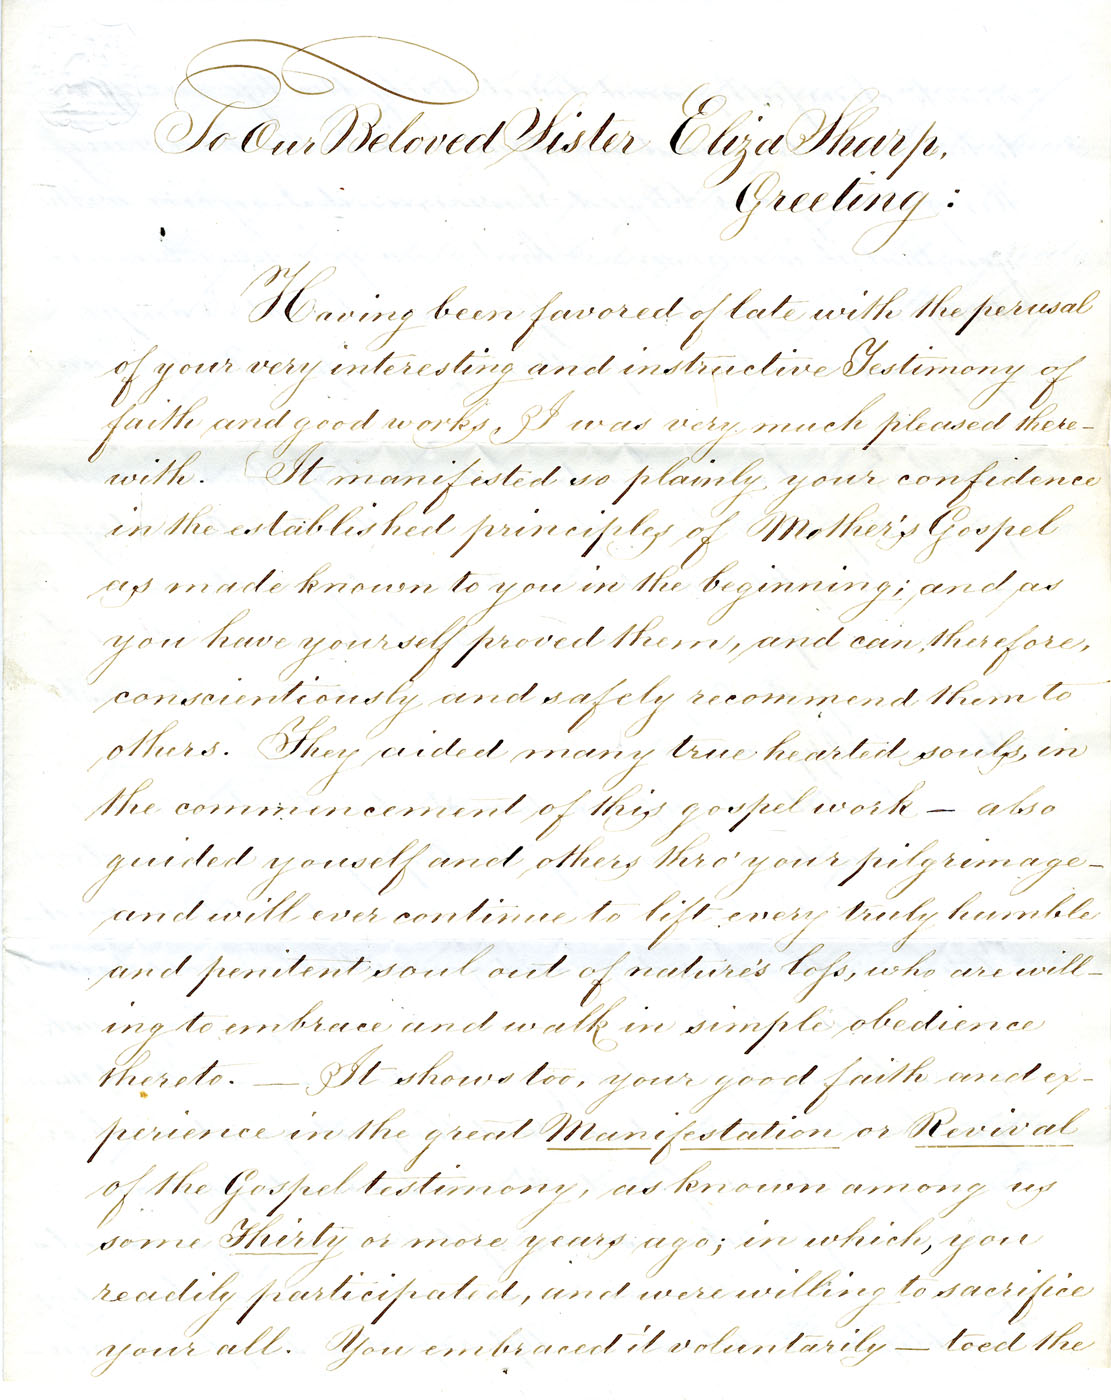 To Our Beloved Sister Eliza Sharp,
Greeting:
Having been favored of late with the perusal
of your very interesting and instructive Testimony of
faith and good works, I was very much pleased there-
with. It manifested so plainly your confidence
in the established principles of Mother's Gospel
as made known to you in the beginning; and as
you have yourself proved them, and can, therefore,
conscientiously and safely recommend them to
others. They aided many true hearted souls, in
the commencement of this gospel work — also
guided youself and others thro' your pilgrimage —
and will ever continue to lift every truly humble
and penitent soul out of nature's loss, who are will-
ing to embrace and walk in simple obedience
thereto. — It shows too, your good faith and ex-
perience in the great Manifestation or Revival
of the Gospel testimony, as known among us
some Thirty or more years ago; in which, you
readily participated, and were willing to sacrifice
your all. You embraced it voluntarily — toed the